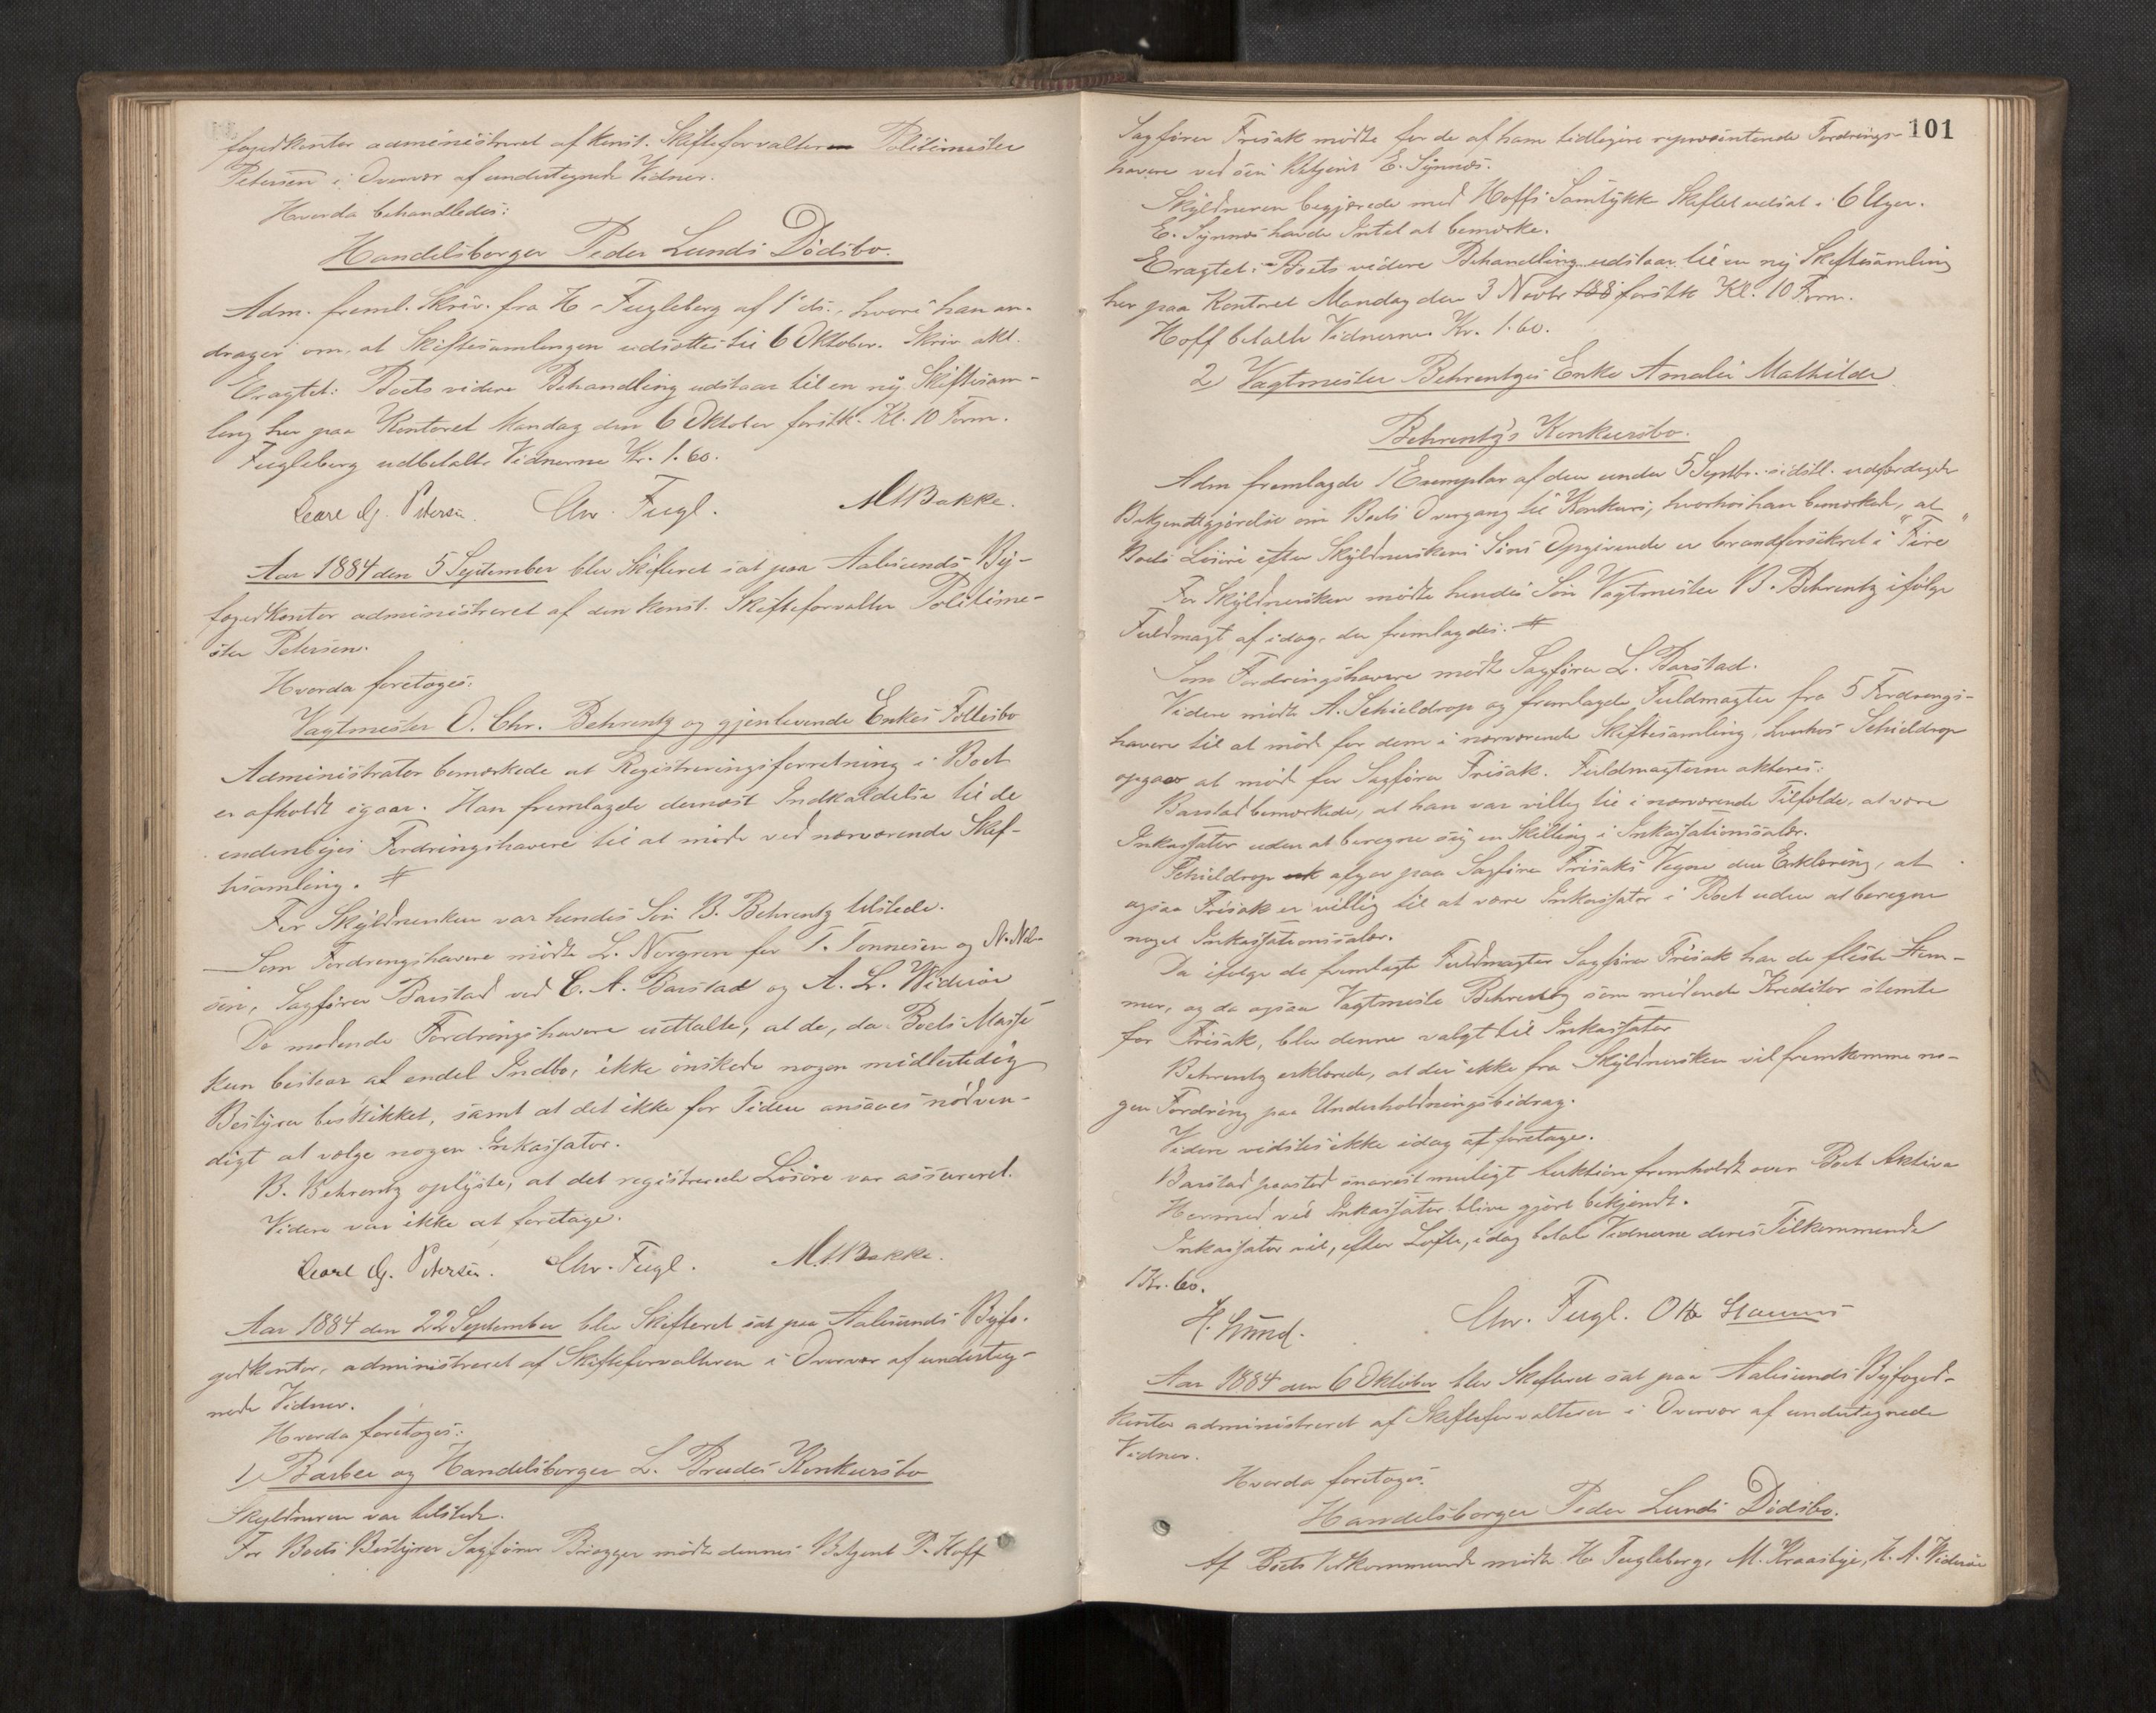 fogedkontor administreret af konst. Skifteforvalter Politimester
Petersen i Overvær af undertegnede Vidner.
Hvorda behandledes:
Handelsborger Peder Lunds Dödsbo.
Adm. freml. Skriv. fra H. Fugleberg af 1 ds., hvori han an-
drager om, at Skiftesamlingen udsættes til 6 Oktober. Skriv. akt.
Eragtet: Boets videre Behandling udstaar til en ny Skiftesam-
ling her paa Kontoret Mandag den 6 Oktober førstk. Kl. 10 Form.
Fugleberg udbetalte Vidnerne Kr. 1.60.
Carl G. Petersen. Chr. Fugl. M Bakke.
Aar 1884 den 5 September blev Skifteret sat paa Aalesunds By-
fogedkontor administreret af den konst. Skifteforvalter Politime-
ster Petersen.
Hvorda foretoges:
Vagtmester O. Chr. Behrentz og gjenlevende Enkes Fællesbo
Administrator bemærkede at Registreringsforretning i Boet
er afholdt igaar. Han fremlagde dernæst Indkaldelse til de
indenbyes Fordringshavere til at möde ved nærværende Skif-
tesamling. #
For Skyldnersken var hendes Sön B. Behrentz tilstede.
Som Fordringshavere mödte L. Norgren for T. Tönnesen og N. Nil-
sen, Sagförer Barstad ved C. A. Barstad og A. L. Wideröe
De mödende Fordringshavere udtalte, at de, da Boets Masse
kun bestaar af endel Indbo, ikke önskede nogen midlertidig
Bestyrer beskikket, samt at det ikke for Tiden ansaaes nödven-
digt at vælge nogen Inkassator.
B. Behrentz oplyste, at det registrerede Lösöre var assureret.
Videre var ikke at foretage.
Carl G. Petersen. Chr. Fugl. M. Bakke.
Aar 1884 den 22 September blev Skifteret sat paa Aalesunds Byfo-
gedkontor, administreret af Skifteforvalteren i Overvær af underteg-
nede Vidner.
Hvorda foretoges:
1) Barber og Handelsborger L. Brudes Konkursbo
Skyldneren var tilstede.
For Boets Bestyrer Sagförer Brögger mödte dennes Betjent P. Hoff
101
Sagförer Frisak mödte for de af ham tidligere repræsenterede Fordrings-
havere ved sin Betjent E. Synnes.
Skyldneren begjærede med Hoffs Samtykke Skiftet udsat i 6 Uger.
E. Synnes havde Intet at bemærke.
Eragtet: Boets videre Behandling udstaar til en ny Skiftesamling
her paa Kontoret Mandag den 3 Novbr 188 førstk Kl. 10 Form.
Hoff betalte Vidnerne Kr. 1.60.
2) Vagtmester Behrentzes Enke Amalie Mathilde
Behrentz's Konkursbo.
Adm fremlagde 1 Exemplar af den under 5 Septbr. sidstl. udfærdigede
Bekjendtgjörelse om Boets Overgang til Konkurs, hvorhos han bemærkede, at
Boets Lösöre efter Skyldnerskens Söns Opgivende er brandforsikret i "Fire"
For Skyldnersken mödte hendes Sön Vagtmester B. Behrentz ifölge
Fuldmagt af idag, der fremlagdes. #
Som Fordringshavere mödte Sagförer L. Barstad.
Videre mödte A. Schieldrop og fremlagde Fuldmagter fra 5 Fordrings-
havere til at möde for dem i nærværende Skiftesamling, hvorhos Schieldrop
opgav at möde for Sagförer Frisak. Fuldmagterne akteres:
Barstad bemærkede, at han var villig til i nærværende Tilfælde, at være
Inkassator uden at beregne sig en Skilling i Inkassationssalær.
Schieldrop afgav paa Sagförer Frisaks Vegne den Erklæring, at
ogsaa Frisak er villig til at være Inkassator i Boet uden at beregne
noget Inkassationssalær.
Da ifölge de fremlagte Fuldmagter Sagförer Frisak har de fleste Stem-
mer, og da ogsaa Vagtmester Behrentz som mödende Kreditor stemte
for Frisak, blev denne valgt til Inkassator
Behrentz erklærede, at der ikke fra Skyldnersken vil fremkomme no-
gen Fordring paa Underholdningsbidrag.
Videre vidstes ikke idag at foretage.
Barstad paastod snarest muligt Auktion fremholdt over Boets Aktiva
Hermed vil Inkassator blive gjort bekjendt.
Inkassator vil, efter Löfte, idag betale Vidnerne deres Tilkommende
1 Kr. 60.
H. Lund. Chr. Fugl. Otto
Aar 1884 den 6 Oktober blev Skifteret sat paa Aalesunds Byfoged-
kontor administreret af Skifteforvalteren i Overvær af undertegnede
Vidner.
Hvorda foretoges.
Handelsborger Peder Lunds Dödsbo.
Af Boets Vedkommende mödte H. Fugleberg, M. Kraasbye, K. A. Wideröe